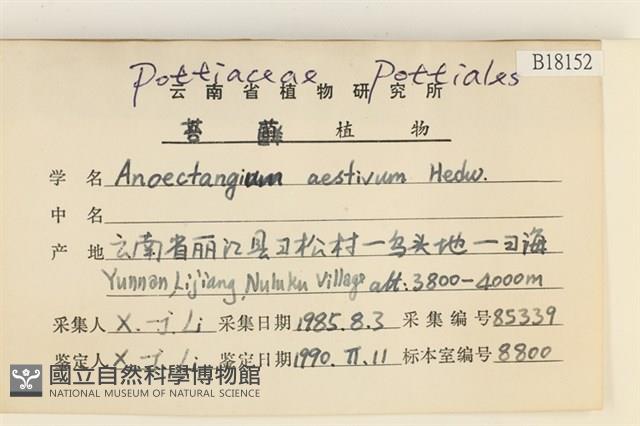 B18152
Pottiaceae Pottiales
云南省植物研究所
苔藓植物
学名 Anoectangium aestivum Hedw.
中名
产地 云南省丽江县习松村一乌头地一习海
Yunnan, Lijiang, Nuluku Village alt: 3800-4000m
采集人 X.-J. Li 采集日期 1985.8.3 采集编号 85339
鉴定人 X.-J. Li 鉴定日期 1990.II.11 标本室编号 8800
國立自然科學博物館
NATIONAL MUSEUM OF NATURAL SCIENCE